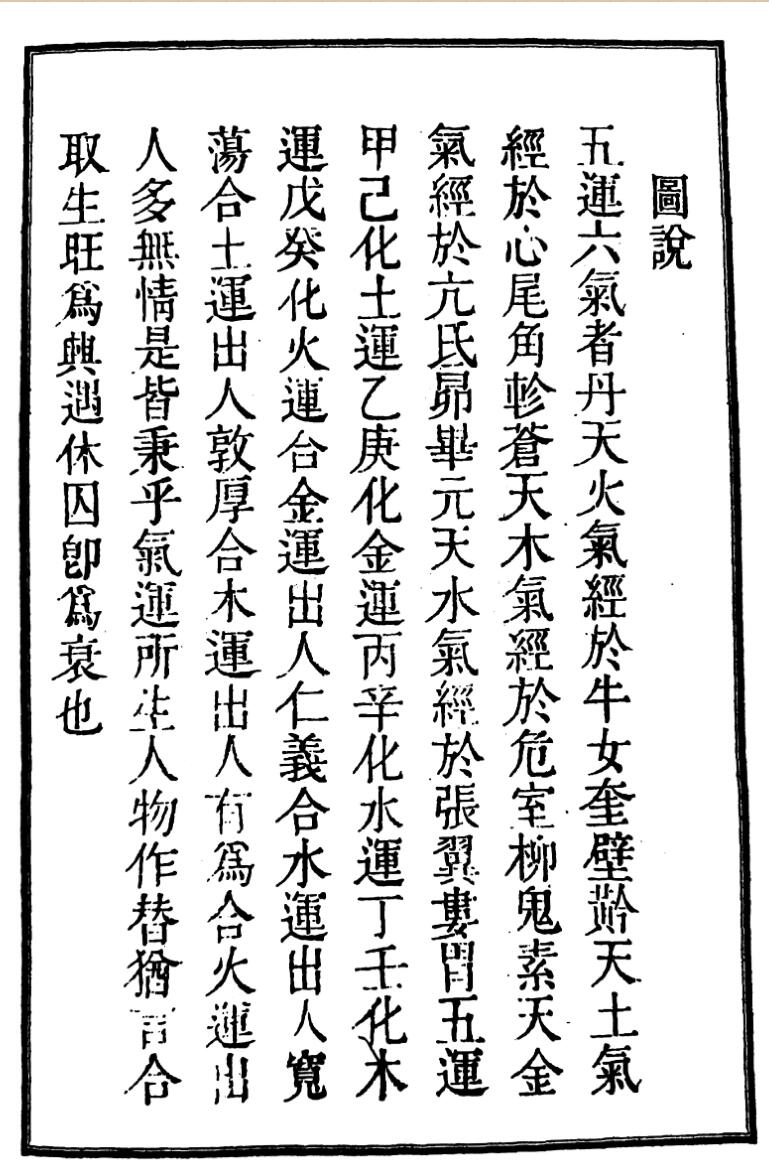 圖說
五運六氣者丹天火氣經於牛女奎壁黅天土氣
經於心尾角軫蒼天木氣經於危室柳鬼素天金
氣經於亢氐昴畢元天水氣經於張翼婁胃五運
甲己化土運乙庚化金運丙辛化水運丁壬化木
運戊癸化火運台金運出人仁義合水運出人寬
蕩合土運出人敦厚合木運出人有爲合火運出
人多無情是皆秉乎氣運所生人物作替猶言合
取生旺爲興遇休囚卽爲衰也